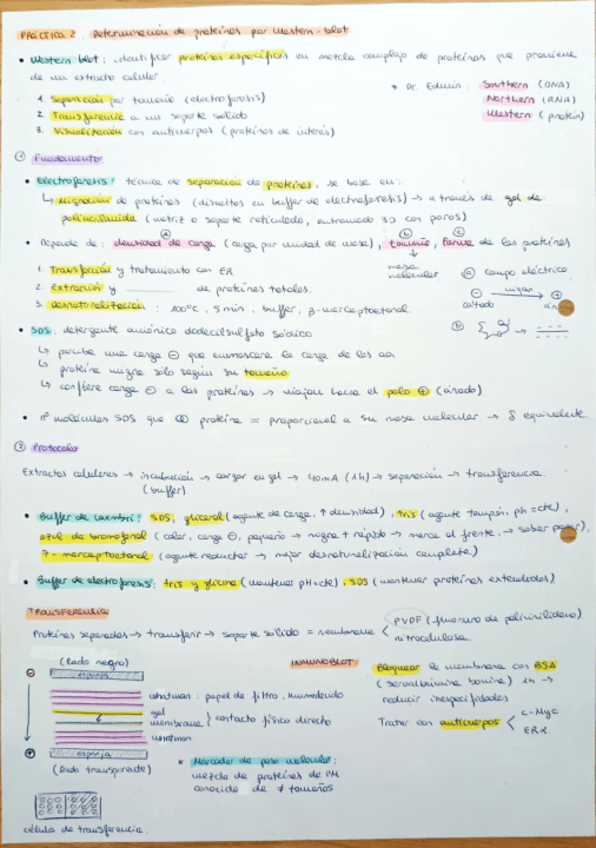 PRÁCTICA 2. Determinación de proteínas por Western-blot
• Western blot: identificar proteínas específicas en mezcla compleja de proteínas que proviene
de un extracto celular.
* Dr. Edwin. Southern (DNA)
Northern (RNA)
Western (protein)
1. Separación por tamaño (electroforesis)
2. Transferencia a un soporte sólido
3. Visualización con anticuerpos (proteínas de interés)
① Fundamento
• Electroforesis: técnica de separación de proteínas, se basa en:
↳ Migración de proteínas (disueltos en buffer de electroforesis) → a través de gel de
poliacrilamida (matriz o soporte reticulado, entramado 3D con poros)
• Depende de: densidad de carga (carga por unidad de masa), tamaño, forma de las proteínas
ⓐ ⓑ ⓒ
↓
masa
molecular
ⓐ campo eléctrico
⊖ migran → ⊕
cátodo
1. Transfección y tratamiento con ER
2. Extracción y ______ de proteínas totales.
3. Desnaturalización: 100ºC, 5 min, buffer, β-mercaptoetanol
ⓑ
• SDS: detergente aniónico dodecilsulfato sódico
↳ carga ⊖ que enmascara la carga de los aa
↳ proteína migra sólo según su tamaño
↳ confiere carga ⊖ a las proteínas → viajan hacia el polo ⊕ (ánodo)
• nº moléculas SDS que proteína = proporcional a su masa molecular → δ equivalente
② Protocolo
Extractos celulares → incubación → cargar en gel → 40mA (1h) → separación → transferencia
(buffer)
• Buffer de Laemmli: SDS, glicerol (agente de carga, ↑ densidad), tris (agente tampón, pH = cte),
azul de bromofenol (color, carga ⊖, pequeño → migra + rápido → marca el frente, → saber parar),
mercaptoetanol (agente reductor → mejor desnaturalización completa)
• Buffer de electroforesis: tris y glicina (mantener pH = cte), SDS (mantener proteínas extendidas)
TRANSFERENCIA
Proteínas separadas → transferir → soporte sólido = membrana < PVDF (fluoruro de polivinilideno)
nitrocelulosa.
(lado negro)
⊖
esponja
whatman: papel de filtro, humedecido
gel
membrana } contacto físico directo
whatman
⊕
esponja
(lado transparente)
célula de transferencia.
* Marcador de peso molecular:
mezcla de proteínas de PM
conocido de ≠ tamaños
INMUNOBLOT
Bloquear la membrana con BSA
(seroalbúmina bovina) 1h →
reducir inespecificidades
Tratar con anticuerpos < c-Myc
ERα